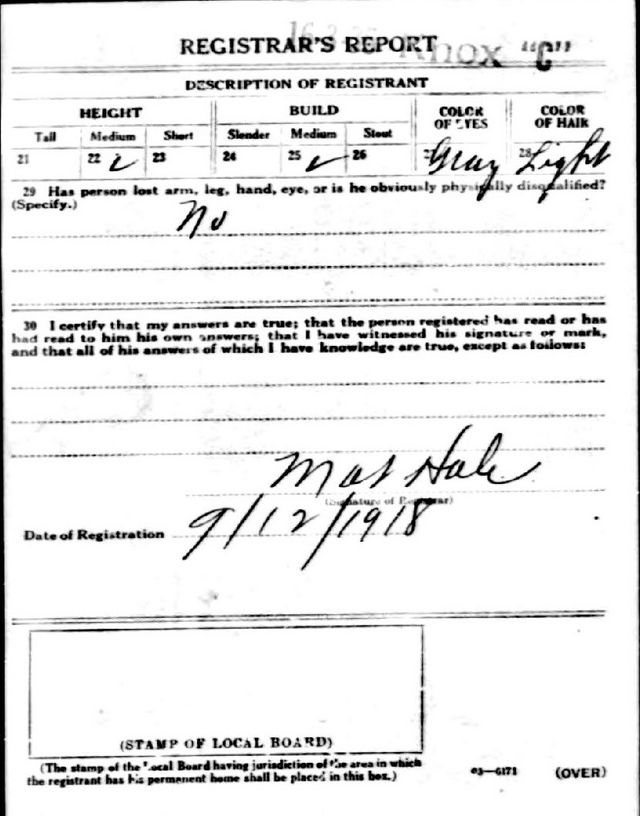 Knox "C"
REGISTRAR'S REPORT
DESCRIPTION OF REGISTRANT
HEIGHT BUILD COLOR OF EYES COLOR OF HAIR
Tall Medium Short Slender Medium Stout
21 22 ✓ 23 24 25 ✓ 26 Gray 28 Light
29 Has person lost arm, leg, hand, eye, or is he obviously physically disqualified?
(Specify.)
No
30 I certify that my answers are true; that the person registered has read or has
had read to him his own answers; that I have witnessed his signature or mark,
and that all of his answers of which I have knowledge are true, except as follows:
Mat Hale
(Signature of Registrar)
Date of Registration 9/12/1918
(STAMP OF LOCAL BOARD)
(The stamp of the Local Board having jurisdiction of the area in which
the registrant has his permanent home shall be placed in this box.)
03—6171 (OVER)